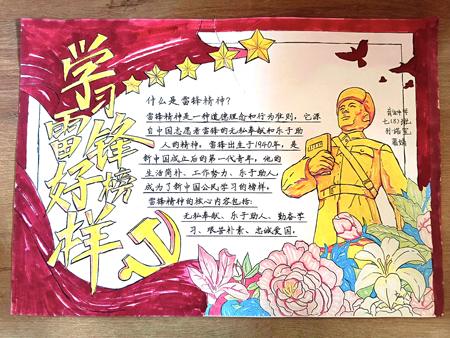 学习雷锋好榜样
什么是雷锋精神?
雷锋精神是一种道德理念和行为准则,它源
自中国志愿者雷锋的无私奉献和乐于助
人的精神。雷锋出生于1940年,是
新中国成立后的第一代青年,他的
生活简朴、工作努力、乐于助人,
成为了新中国公民学习的榜样。
雷锋精神的核心内容包括:
无私奉献、乐于助人、勤奋学
习、艰苦朴素、忠诚爱国。